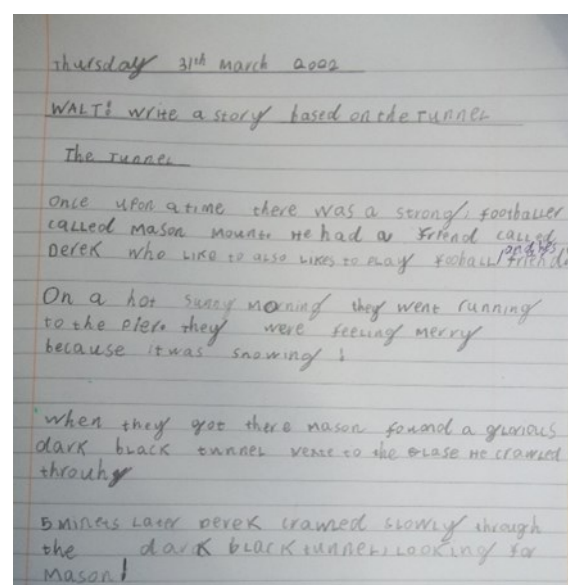 Thursday 31th march 2002
WALT: write a story based on the Tunner
The Tunnel
Once upon a time there was a strong, footballer
called Mason Mount. He had a friend called
Derek who like to also likes to play fooball friend
On a hot sunny morning they went running
to the pier. they were feeling merry
because it was snowing!
when they got there mason found a glorious
dark black tunnel next to the He crawled
throuhg
5 miners Later Derek crawled slowly through
the dark black tunnel, Looking for
Mason!